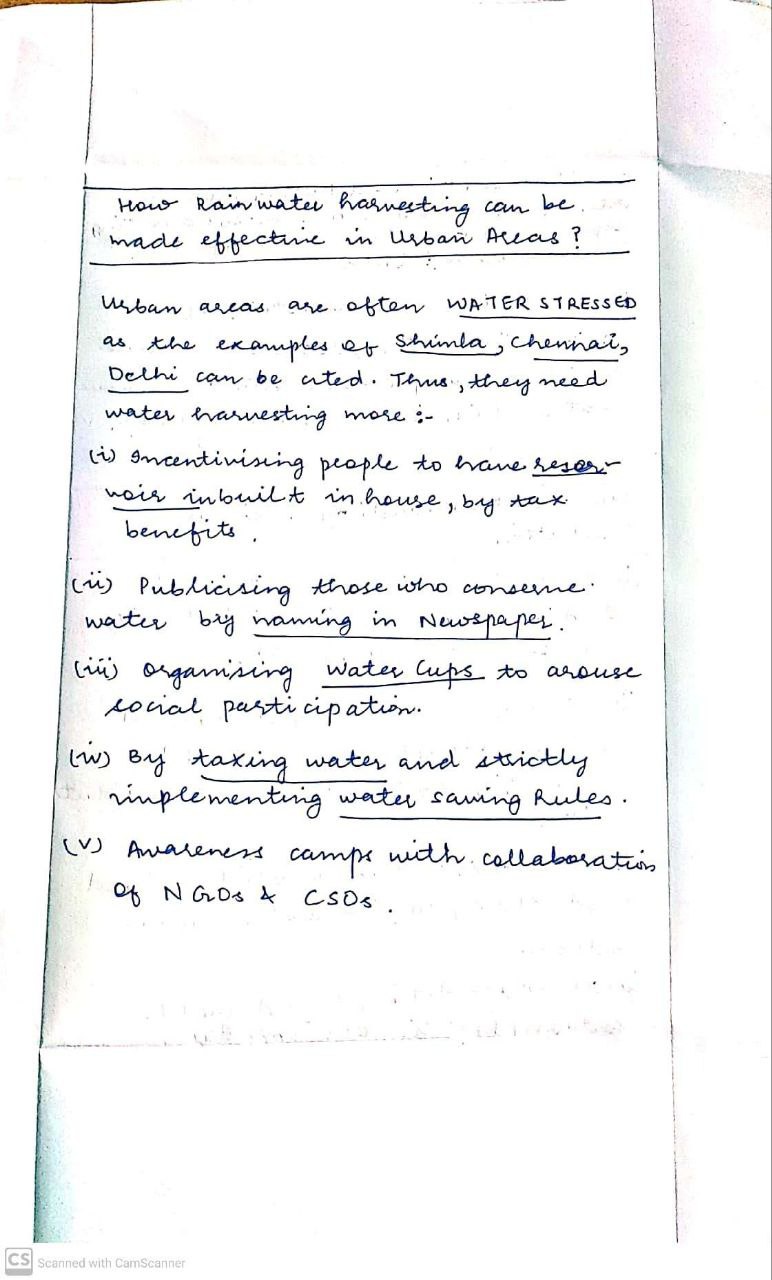 How Rain water harvesting can be
made effective in Urban Areas ?
Urban areas are often WATER STRESSED
as the examples of Shimla, Chennai,
Delhi can be cited. Thus, they need
water harvesting more :-
(i) Incentivising people to have reser-
voir inbuilt in house, by tax
benefits.
(ii) Publicising those who conserve
water by naming in Newspaper.
(iii) Organising Water Cups to arouse
social participation.
(iv) By taxing water and strictly
implementing water saving Rules.
(v) Awareness camps with collaboration
of NGOs & CSOs.
CS Scanned with CamScanner